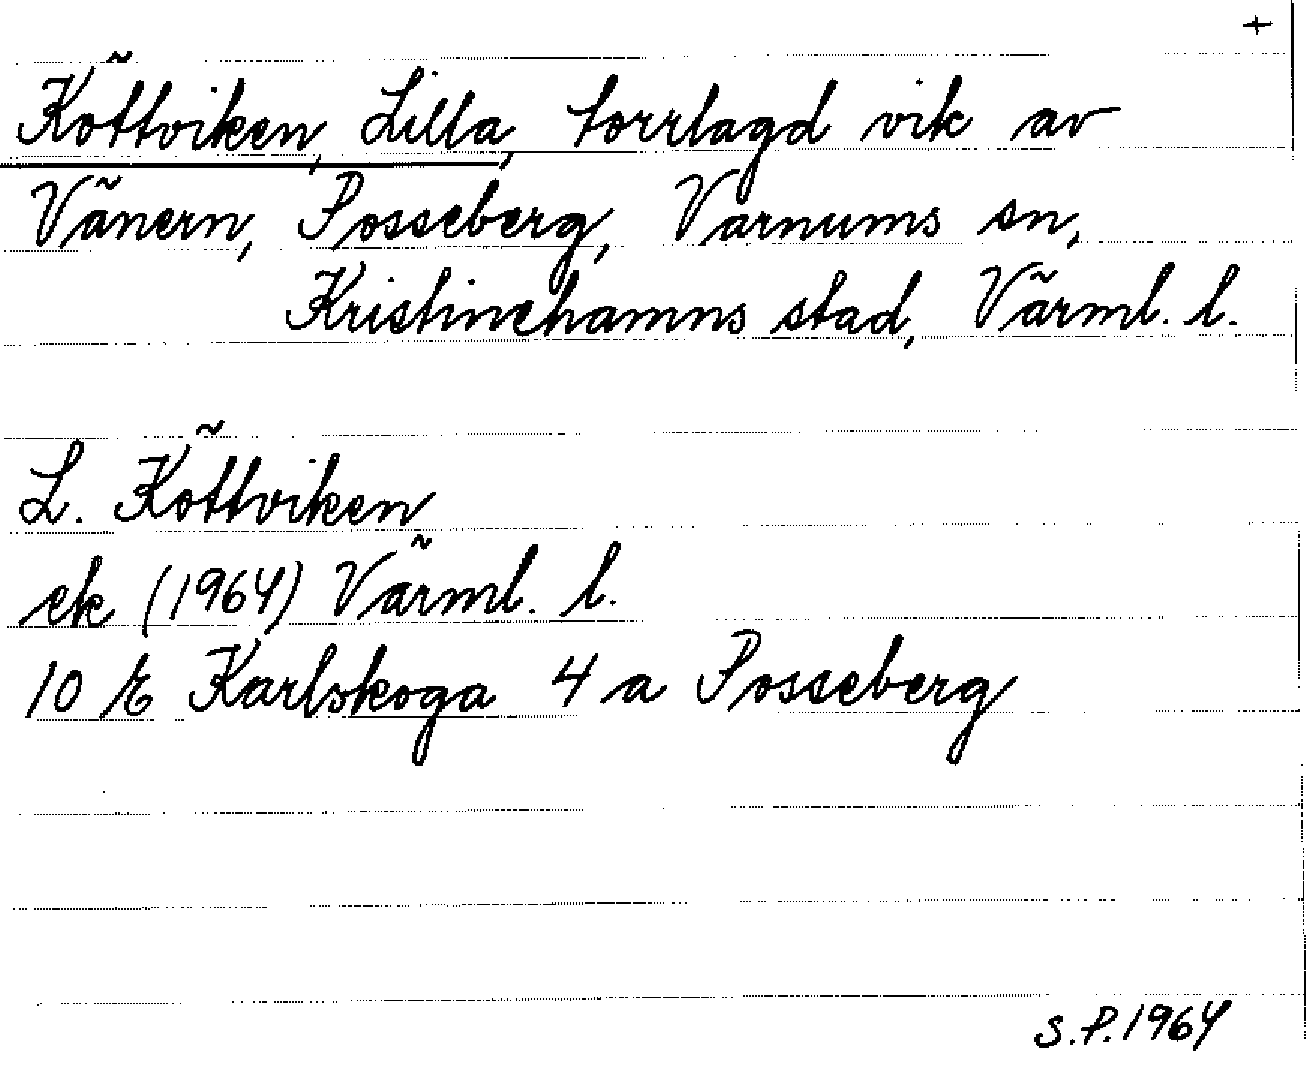 +
Köttviken, Lilla, torrlagd vik av
Vänern, Posseberg, Varnums sn,
Kristinehamns stad, Värml. l.
L. Köttviken
ek (1964) Värml. l.
10 E Karlskoga 4 a Posseberg
S.P. 1964